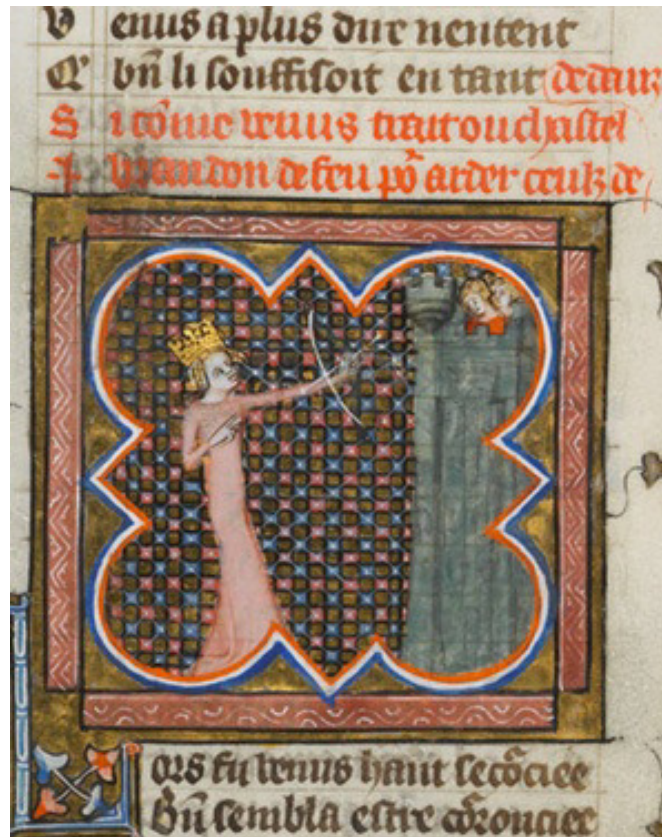 V enus a plus dur nentent
Q' bñ li souffisoit en tant de dñr
S i cõme venus trait ou chastel
+ brandon de feu põ arder ceulz de
L ors fu venus haut secõciee
Bñ sembla estre cõrouciee